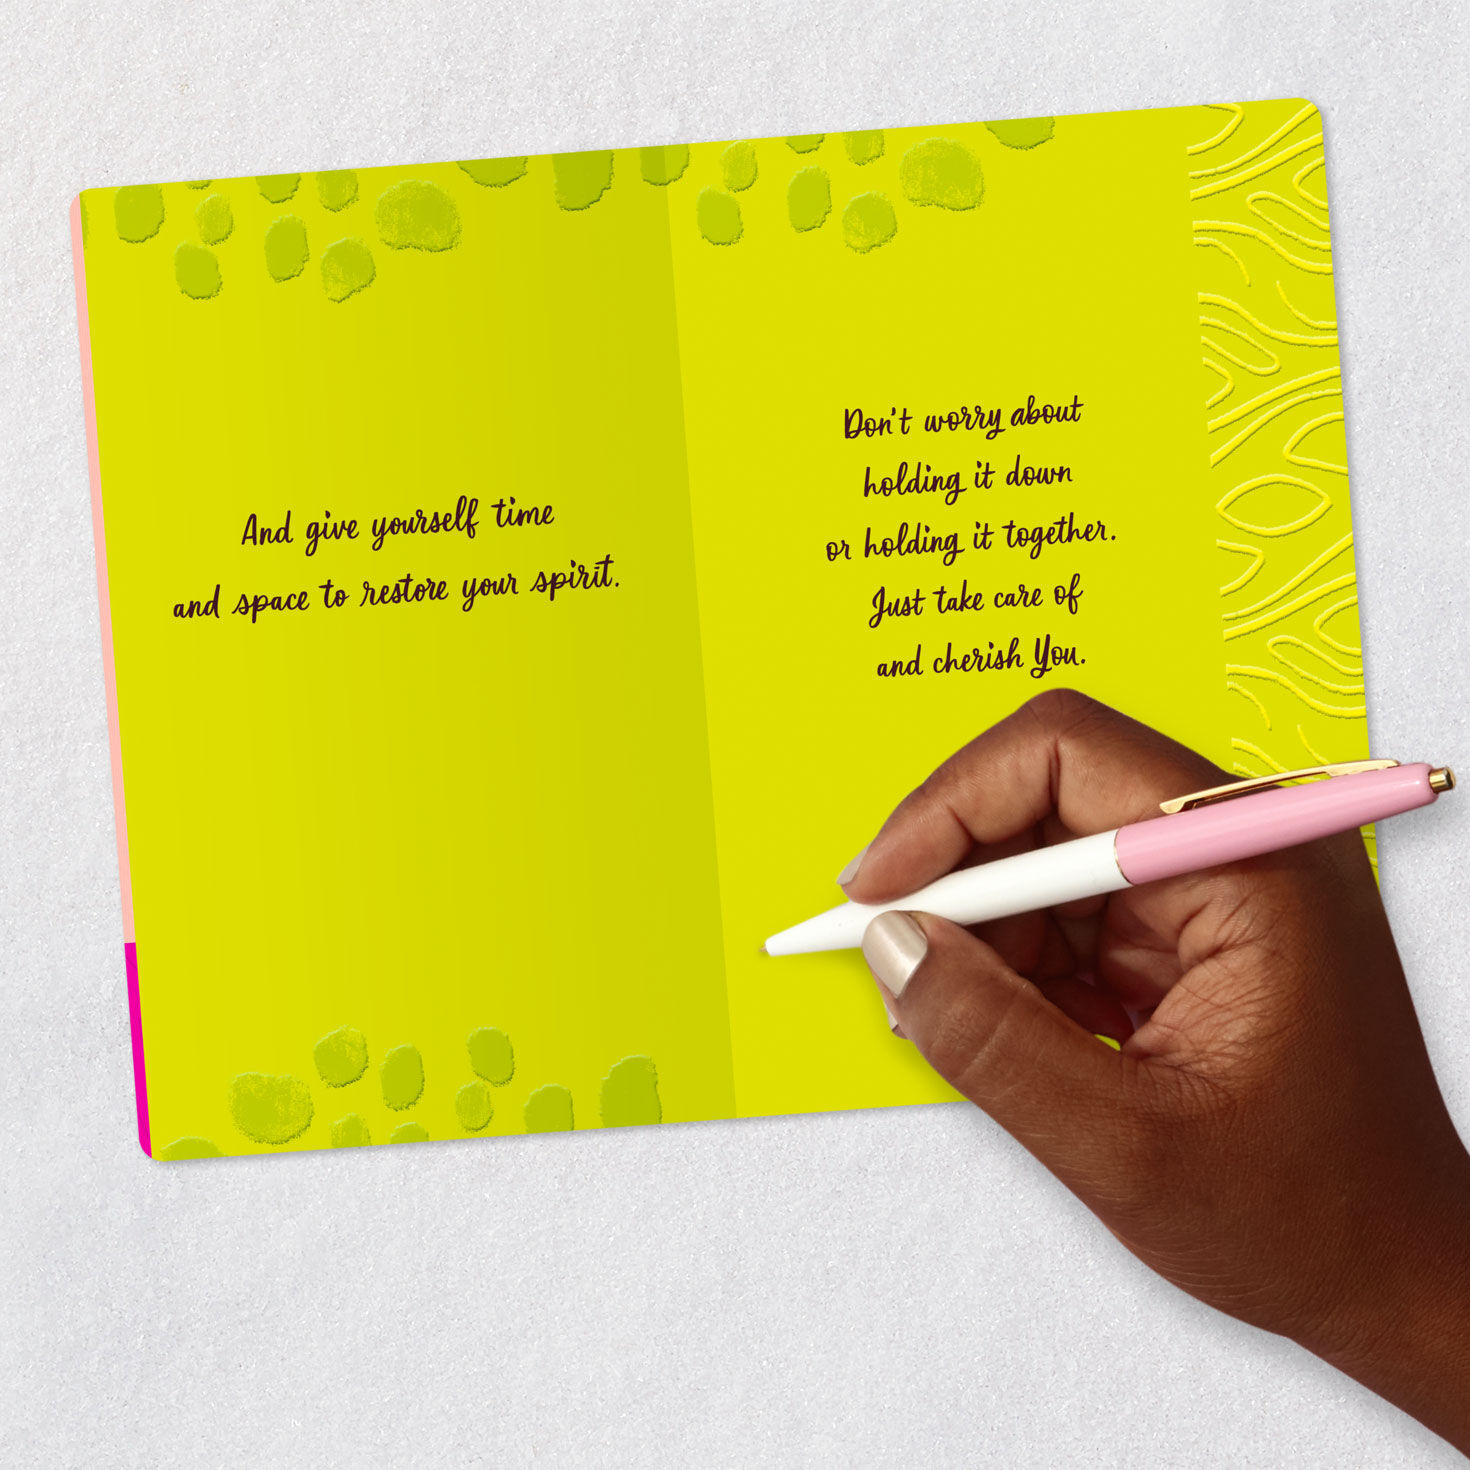 And give yourself time
and space to restore your spirit.
Don't worry about
holding it down
or holding it together.
Just take care of
and cherish You.